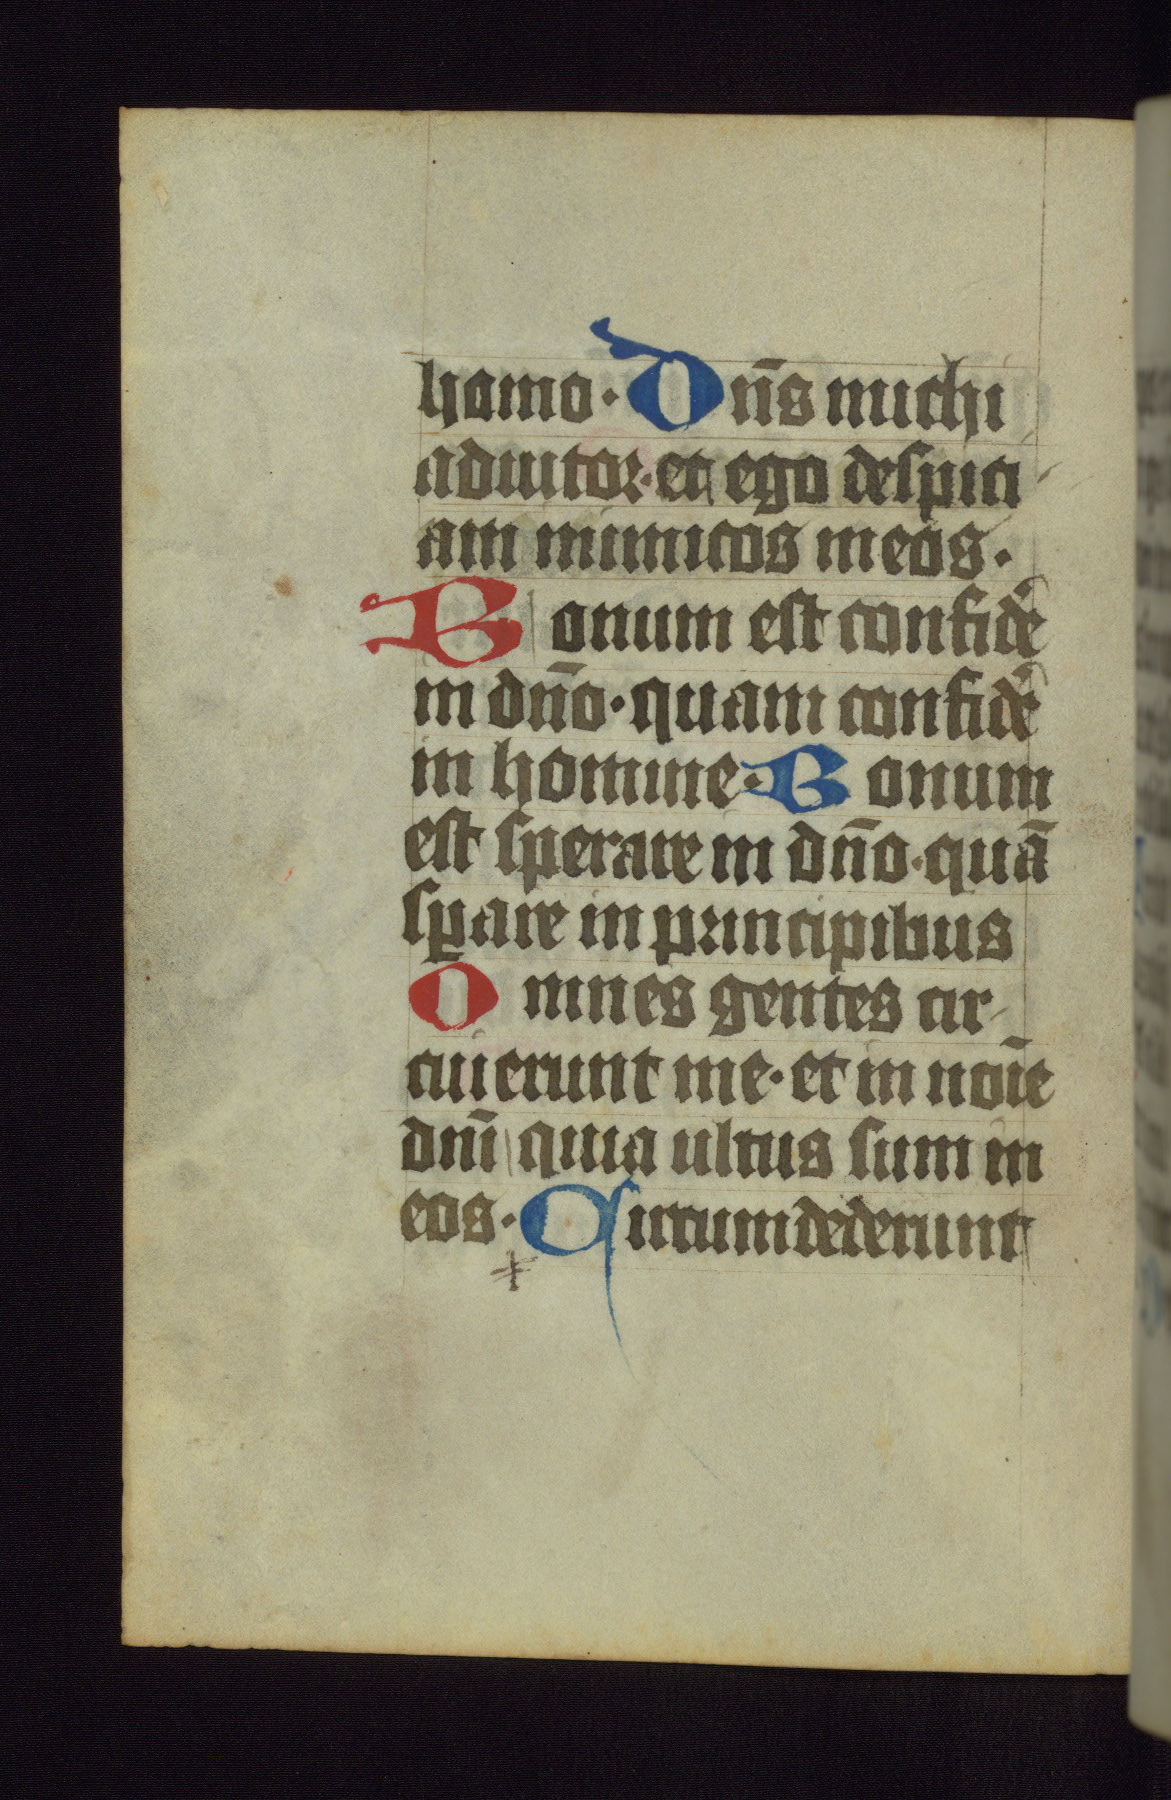 homo. Dn̄s michi
adiutor. et ego despici
am inimicos meos.
Bonum est confide᷑
in dn̄o. quam confide᷑
in homine. Bonum
est sperare in dn̄o. quā
sꝑare in principibus
Omnes gentes cir
cuierunt me. et in noı̄e
dnı̄ quia ultus sum in
eos. Circumdederunt